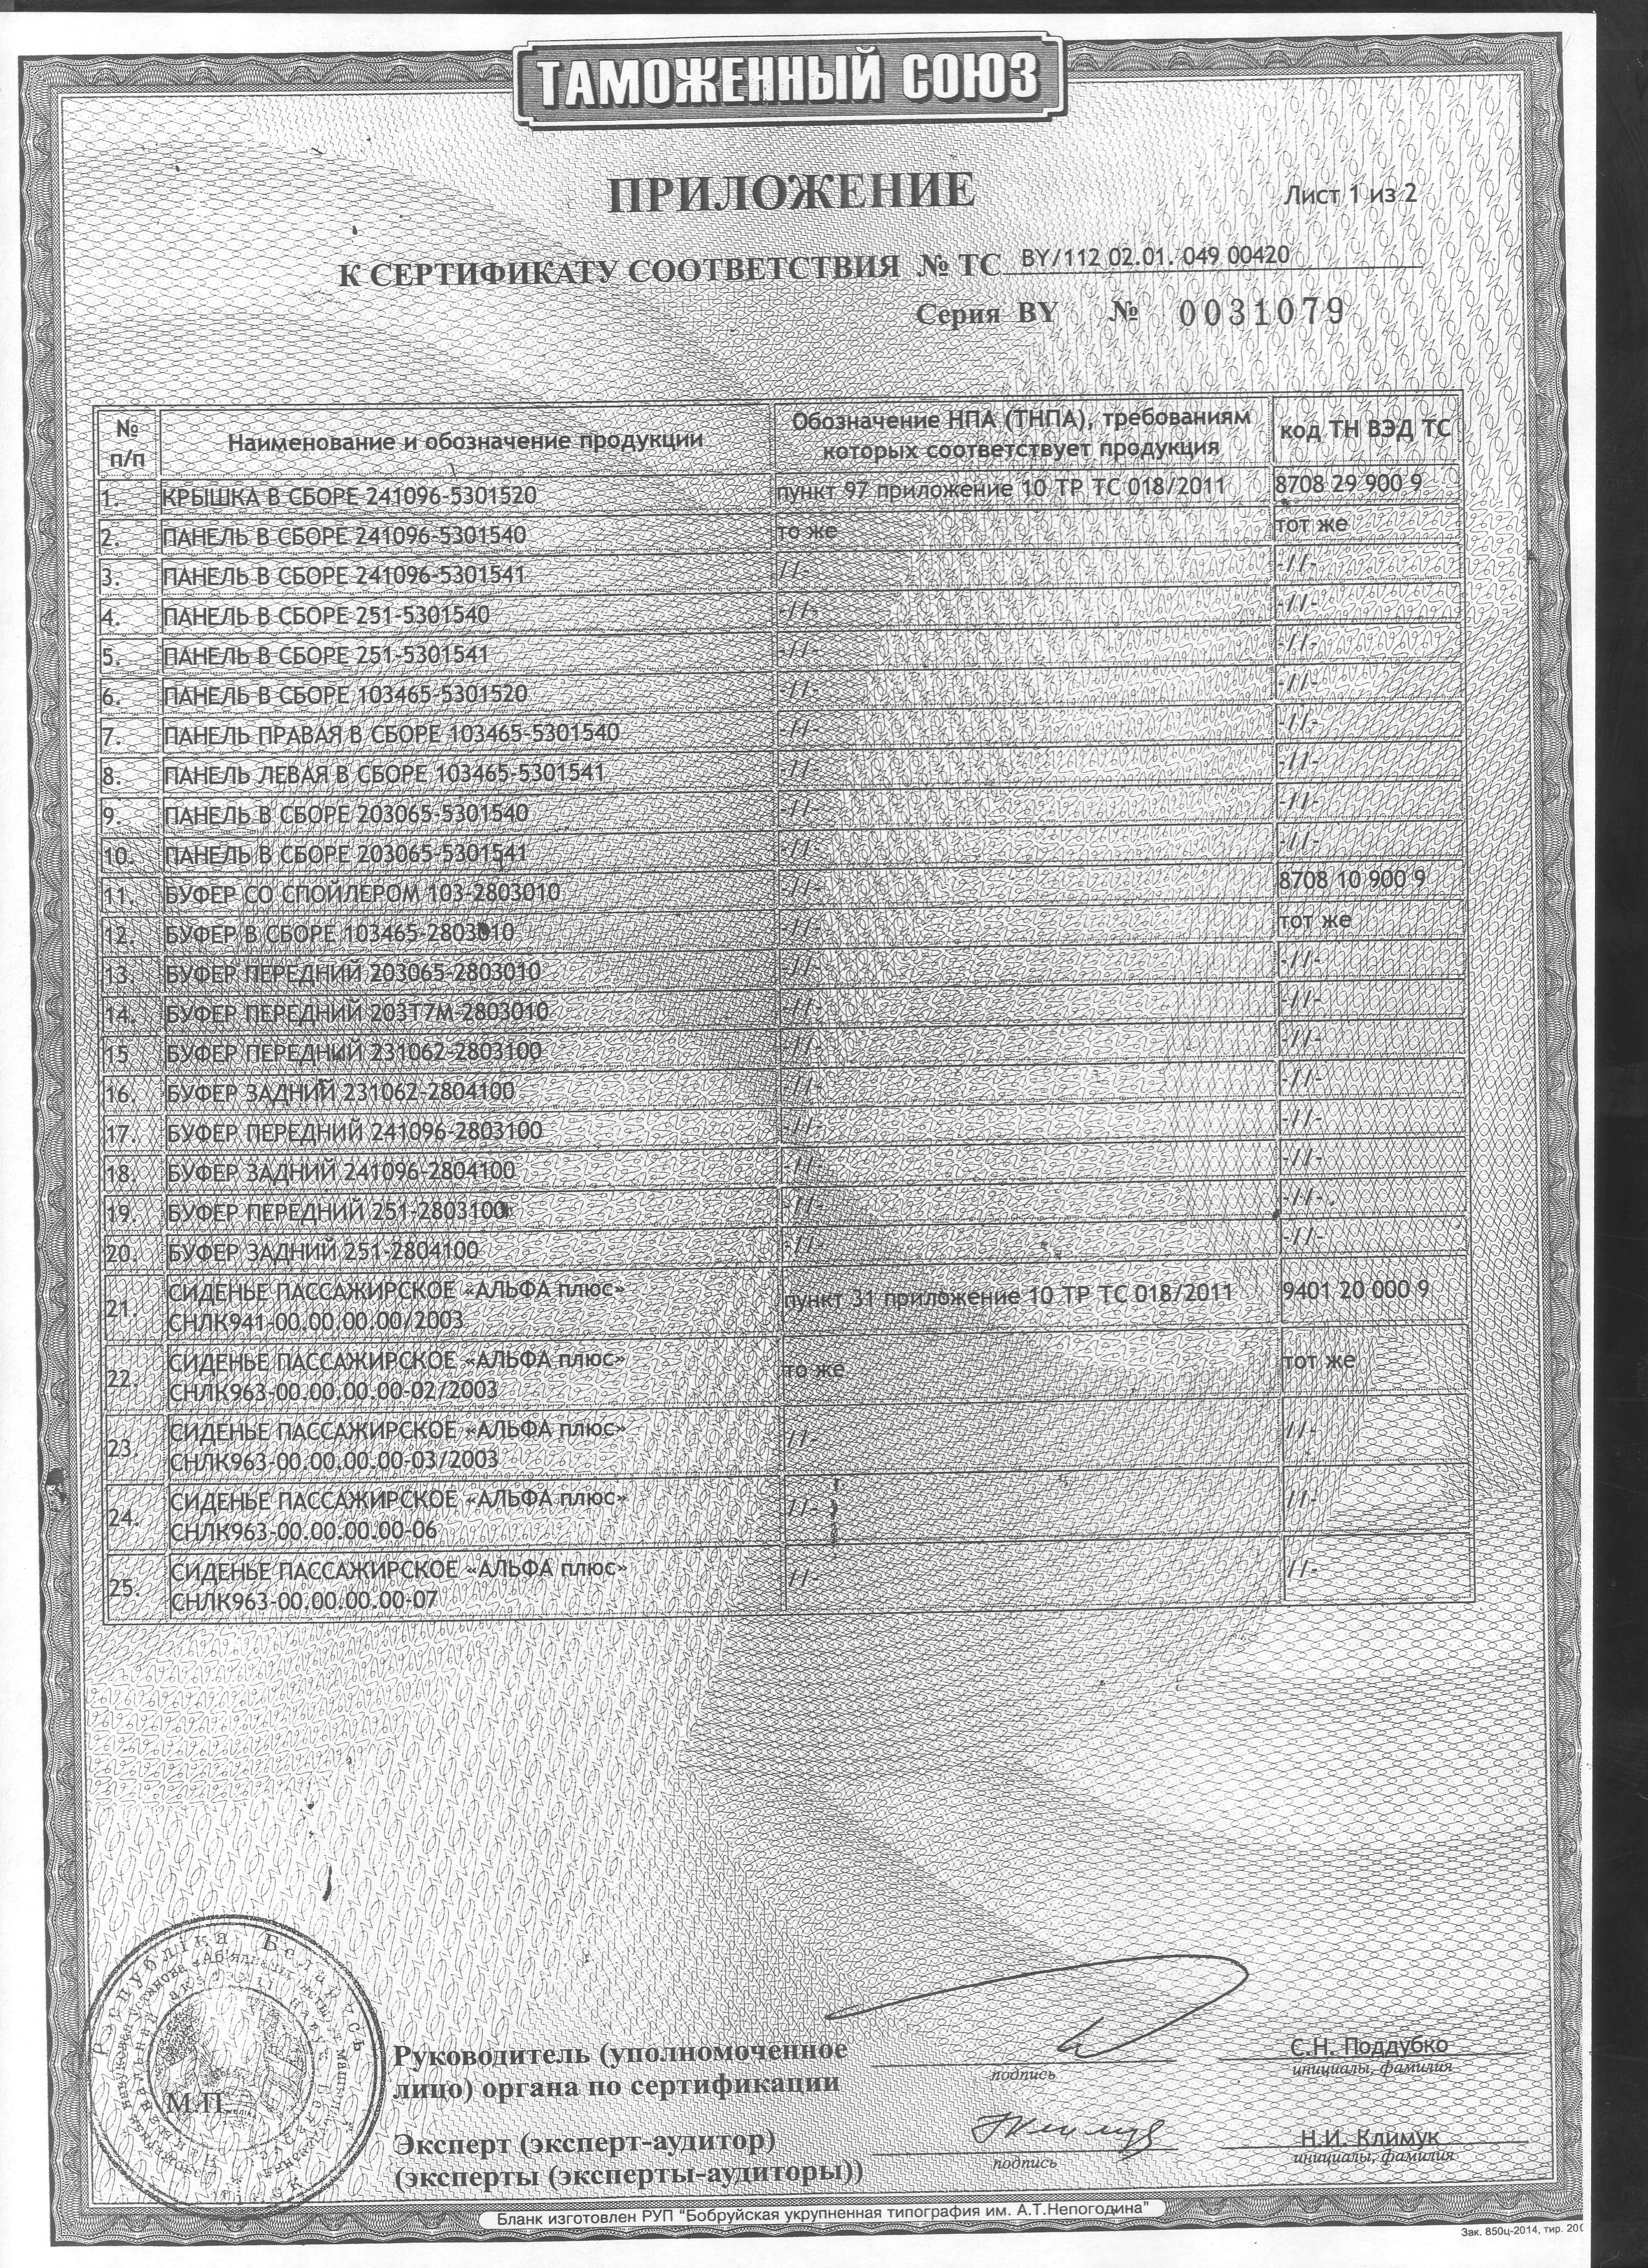 ТАМОЖЕННЫЙ СОЮЗ
ПРИЛОЖЕНИЕ
Лист 1 из 2
К СЕРТИФИКАТУ СООТВЕТСТВИЯ № ТС BY/112 02.01. 049 00420
Серия BY № 0031079
№ п/п Наименование и обозначение продукции Обозначение НПА (ТНПА), требованиям которых соответствует продукция код ТН ВЭД ТС
1. КРЫШКА В СБОРЕ 241096-5301520 пункт 97 приложение 10 ТР ТС 018/2011 8708 29 900 9
2. ПАНЕЛЬ В СБОРЕ 241096-5301540 то же тот же
3. ПАНЕЛЬ В СБОРЕ 241096-5301541 -//- -//-
4. ПАНЕЛЬ В СБОРЕ 251-5301540 -//- -//-
5. ПАНЕЛЬ В СБОРЕ 251-5301541 -//- -//-
6. ПАНЕЛЬ В СБОРЕ 103465-5301520 -//- -//-
7. ПАНЕЛЬ ПРАВАЯ В СБОРЕ 103465-5301540 -//- -//-
8. ПАНЕЛЬ ЛЕВАЯ В СБОРЕ 103465-5301541 -//- -//-
9. ПАНЕЛЬ В СБОРЕ 203065-5301540 -//- -//-
10. ПАНЕЛЬ В СБОРЕ 203065-5301541 -//- -//-
11. БУФЕР СО СПОЙЛЕРОМ 103-2803010 -//- 8708 10 900 9
12. БУФЕР В СБОРЕ 103465-2803010 -//- тот же
13. БУФЕР ПЕРЕДНИЙ 203065-2803010 -//- -//-
14. БУФЕР ПЕРЕДНИЙ 203Т7М-2803010 -//- -//-
15 БУФЕР ПЕРЕДНИЙ 231062-2803100 -//- -//-
16. БУФЕР ЗАДНИЙ 231062-2804100 -//- -//-
17. БУФЕР ПЕРЕДНИЙ 241096-2803100 -//- -//-
18. БУФЕР ЗАДНИЙ 241096-2804100 -//- -//-
19. БУФЕР ПЕРЕДНИЙ 251-2803100 -//- -//-
20. БУФЕР ЗАДНИЙ 251-2804100 -//- -//-
21. СИДЕНЬЕ ПАССАЖИРСКОЕ «АЛЬФА плюс» пункт 31 приложение 10 ТР ТС 018/2011 9401 20 000 9
СНЛК941-00.00.00.00/2003
22. СИДЕНЬЕ ПАССАЖИРСКОЕ «АЛЬФА плюс» то же тот же
СНЛК963-00.00.00.00-02/2003
23. СИДЕНЬЕ ПАССАЖИРСКОЕ «АЛЬФА плюс» -//- -//-
СНЛК963-00.00.00.00-03/2003
24. СИДЕНЬЕ ПАССАЖИРСКОЕ «АЛЬФА плюс» -//- -//-
СНЛК963-00.00.00.00-06
25. СИДЕНЬЕ ПАССАЖИРСКОЕ «АЛЬФА плюс» -//- -//-
СНЛК963-00.00.00.00-07
Рэспубліка Беларусь
М.П.
Руководитель (уполномоченное
лицо) органа по сертификации
подпись
С.Н. Поддубко
инициалы, фамилия
Эксперт (эксперт-аудитор)
(эксперты (эксперты-аудиторы))
подпись
Н.И. Климук
инициалы, фамилия
Бланк изготовлен РУП "Бобруйская укрупненная типография им. А.Т.Непогодина"
Зак. 850ц-2014, тир. 200